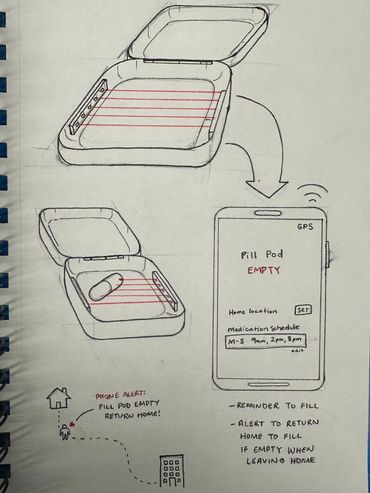 GPS
Pill Pod
EMPTY
Home location SET
Medication Schedule
M-S 9am, 2pm, 8pm
edit
PHONE ALERT:
PILL POD EMPTY
RETURN HOME!
- REMINDER TO FILL
- ALERT TO RETURN
HOME TO FILL
IF EMPTY WHEN
LEAVING HOME